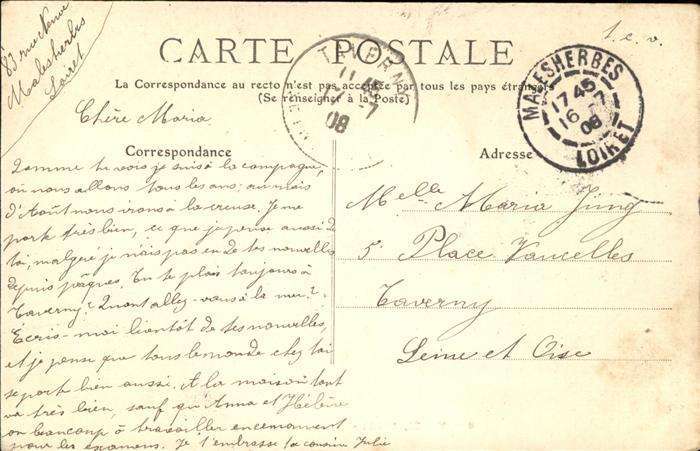 83 rue Neuve
Malesherbes
Loiret
t.c.v.
CARTE POSTALE
La Correspondance au recto n'est pas acceptée par tous les pays étrangers
(Se renseigner à la Poste)
TAVERNY
11
7
08
MALESHERBES
17 45
16 -7
08
LOIRET
Chère Maria
Correspondance
Comme tu vois je suis à la campagne,
où nous allons tous les ans, au mois
d'Août nous irons à la creuse. Je me
porte très bien, ce que je pense aussi de
toi, malgré je n'ais pas eu de tes nouvelles
depuis pâques. Tu te plais toujours à
Taverny? Quant allez-vous à la mer?
Écris-moi bientôt de tes nouvelles,
et je pense que tous le monde chez toi
se porte bien aussi. A la maison tout
va très bien, sauf qu'Anna et Hélène
on beaucoup à travailler en ce moment
pour les examens. Je t'embrasse ta cousine Julie
Adresse
Melle Maria Jung
5 Place Vaucelles
Taverny
Seine et Oise